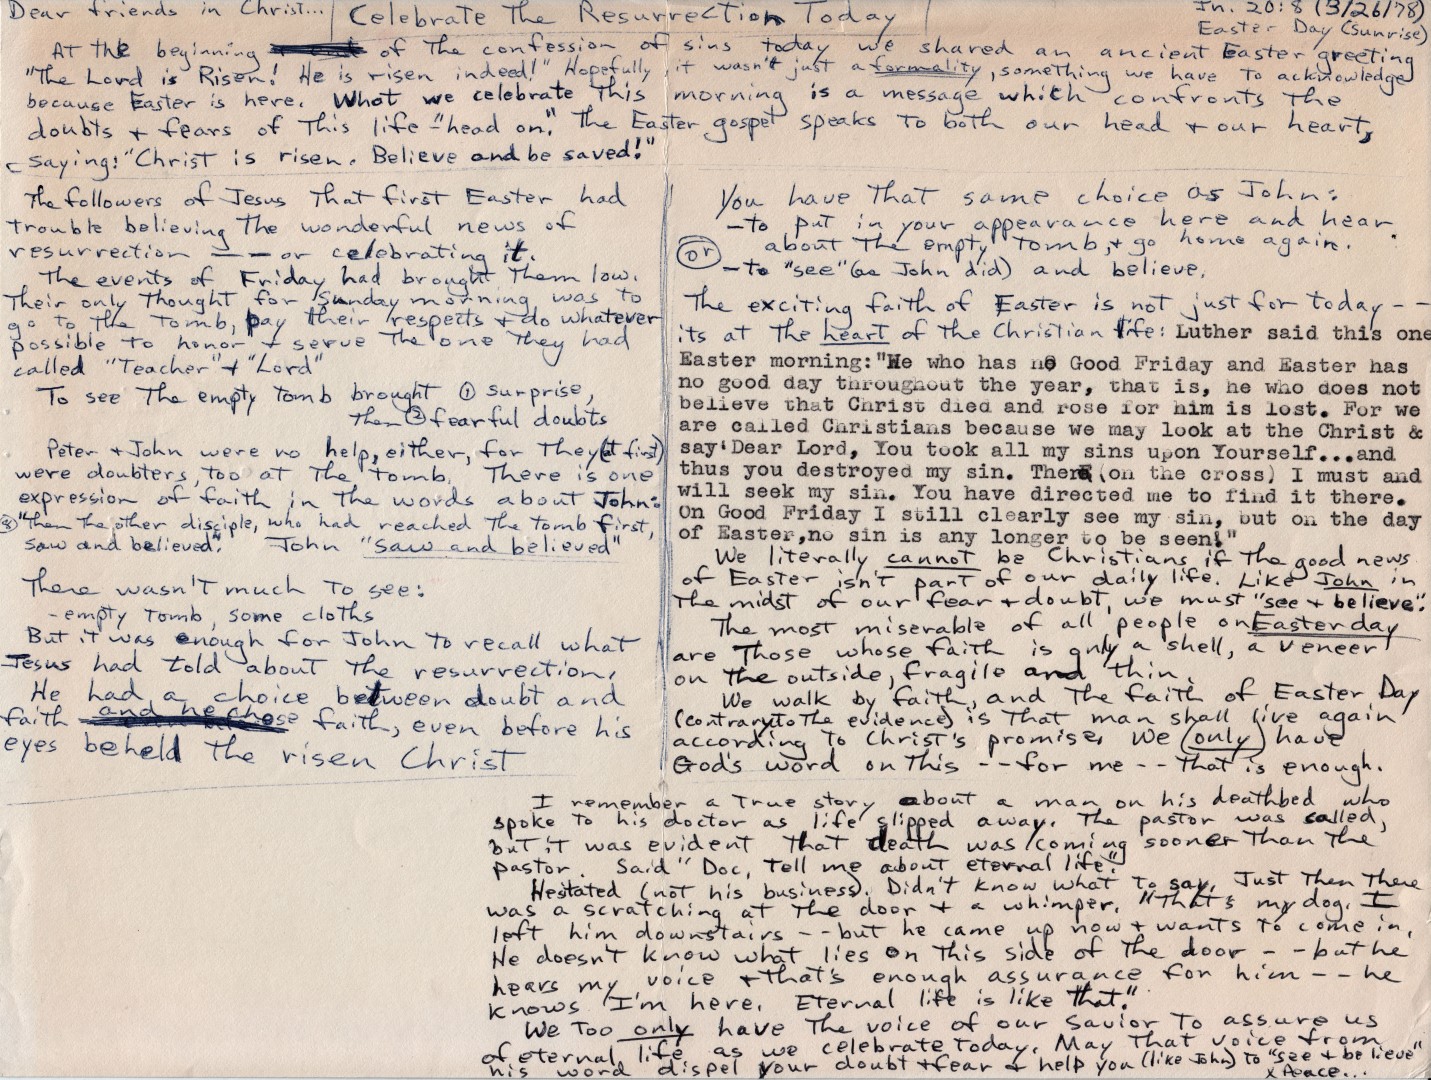 Dear friends in Christ... Celebrate The Resurrection Today Jn. 20:8 (3/26/78)
Easter Day (Sunrise)
At the beginning of the confession of sins today we shared an ancient Easter greeting
"The Lord is Risen! He is risen indeed!" Hopefully, it wasn't just a formality, something we have to acknowledge
because Easter is here. What we celebrate this morning is a message which confronts the
doubts + fears of this life "head on." The Easter gospel speaks to both our head + our heart,
saying: "Christ is risen. Believe and be saved!"
The followers of Jesus that first Easter had
trouble believing the wonderful news of
resurrection -- or celebrating it.
The events of Friday had brought them low.
Their only thought for Sunday morning was to
go to the tomb, pay their respects + do whatever
possible to honor + serve the one they had
called "Teacher" + "Lord"
To see the empty tomb brought ① surprise,
then ② fearful doubts
Peter + John were no help, either, for they (at first)
were doubters, too at the tomb. There is one
expression of faith in the words about John:
(8) "Then the other disciple, who had reached the tomb first,
saw and believed". John "saw and believed"
There wasn't much to see:
-empty tomb, some cloths
But it was enough for John to recall what
Jesus had told about the resurrection.
He had a choice between doubt and
faith and he chose faith, even before his
eyes beheld the risen Christ
You have that same choice as John:
-to put in your appearance here and hear
about the empty tomb, + go home again.
or
-to "see" (as John did) and believe.
The exciting faith of Easter is not just for today --
its at the heart of the Christian life: Luther said this one
Easter morning: "He who has no Good Friday and Easter has
no good day throughout the year, that is, he who does not
believe that Christ died and rose for him is lost. For we
are called Christians because we may look at the Christ &
say 'Dear Lord, You took all my sins upon Yourself...and
thus you destroyed my sin. There (on the cross) I must and
will seek my sin. You have directed me to find it there.
On Good Friday I still clearly see my sin, but on the day
of Easter,no sin is any longer to be seen!'"
We literally cannot be Christians if the good news
of Easter isn't part of our daily life. Like John in
the midst of our fear + doubt, we must "see + believe".
The most miserable of all people on Easter day
are those whose faith is only a shell, a veneer
on the outside, fragile and thin.
We walk by faith, and the faith of Easter Day
(contrary to the evidence) is that man shall live again
according to Christ's promise. We (only) have
God's word on this -- for me -- that is enough.
I remember a true story about a man on his deathbed who
spoke to his doctor as life slipped away. The pastor was called,
but it was evident that death was coming sooner than the
pastor. Said "Doc, tell me about eternal life."
Hesitated (not his business). Didn't know what to say. Just then there
was a scratching at the door + a whimper. "That's my dog. I
left him downstairs -- but he came up now + wants to come in.
He doesn't know what lies on this side of the door -- but he
hears my voice + that's enough assurance for him -- he
knows I'm here. Eternal life is like that."
We too only have the voice of our Savior to assure us
of eternal life as we celebrate today. May that voice from
his word dispel your doubt + fear + help you (like John) to "see + believe"
Peace...